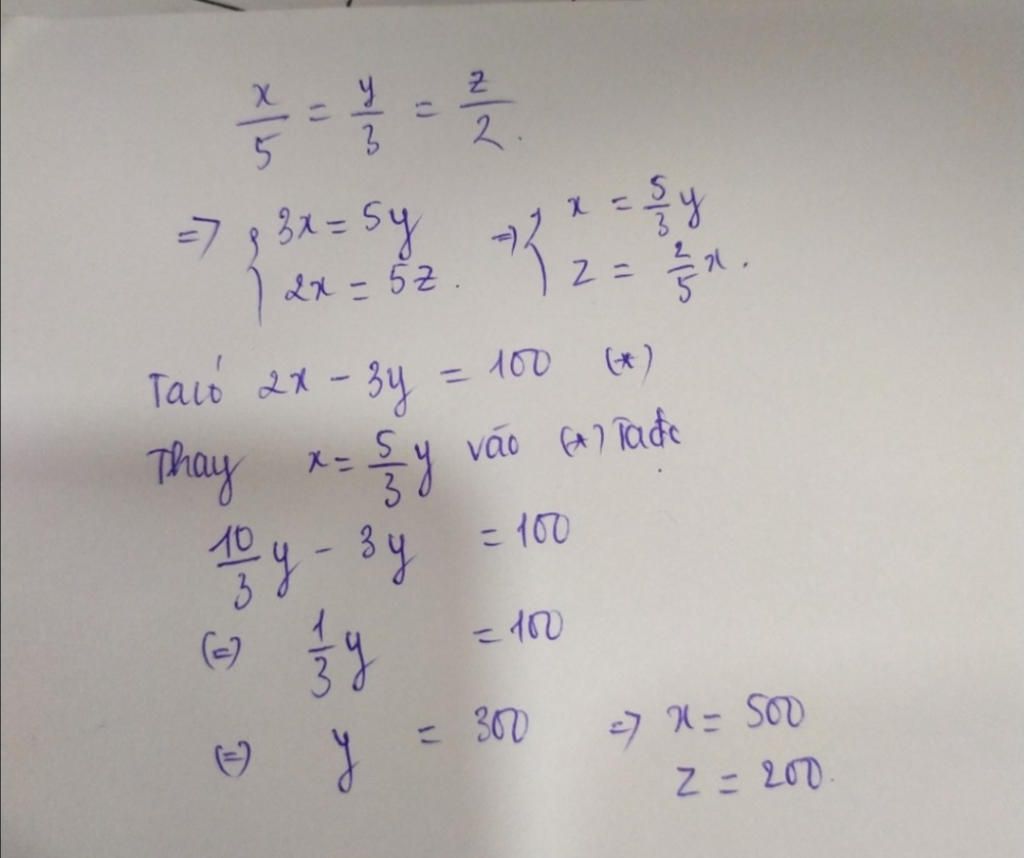 x/5 = y/3 = z/2.
=> { 3x = 5y => { x = 5/3 y
2x = 5z. z = 2/5 x.
Ta có 2x - 3y = 100 (*)
Thay x = 5/3 y vào (*) Ta đc
10/3 y - 3y = 100
(=) 1/3 y = 100
(=) y = 300 => x = 500
z = 200.